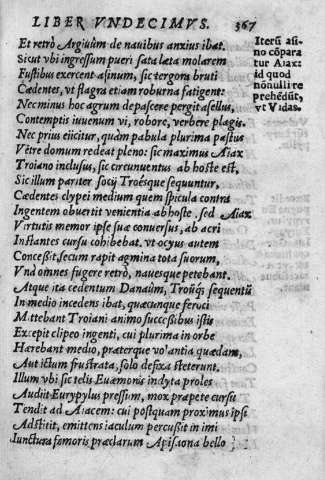 LIBER VNDECIMVS. 367
Et retrò Argiuûm de nauibus anxius ibat.
Sicut vbi ingressum pueri sata læta molarem
Fustibus exercent asinum, sic tergora bruti
Cædentes, vt flagra etiam roburna fatigent:
Nec minus hoc agrum depascere pergit asellus,
Contemptis iuuenum vi, robore, verbere plagis.
Nec prius eiicitur, quàm pabula plurima pastus
Vêtre domum redeat pleno: sic maximus Aiax
Troiano inclusus, sic circunuentus ab hoste est,
Sic illum pariter socij Troésque sequuntur,
Cædentes clypei medium quem spicula contra
Ingentem obuertit venientia ab hoste. sed Aiax
Virtutis memor ipse suæ conuersus, ab acri
Instantes cursu cohibebat. vt ocyus autem
Concessit, secum rapit agmina tota suorum,
Vnd omnes fugere retrò, nauesque petebant.
Atque ita cedentum Danaûm, Troûq; sequentû
In medio incedens ibat, quæcunque feroci
Mittebant Troiani animo successibus istis
Excepit clipeo ingenti, cui plurima in orbe
Hærebant medio, præterque volantia quædam,
Aut ictum frustrata, solo defixa steterunt.
Illum vbi sic telis Euæmonis indyta proles
Audiit Eurypylus pressum, mox præpete cursu
Tendit ad Aiacem: cui postquam proximus ipsi
Adstitit, emittens iaculum percussit in imi
Iunctura femoris præclarum Apisaona bello
Iterū asi-
no cōpara
tur Aiax:
id quod
nōnulli re
prehēdūt,
vt Vidas.